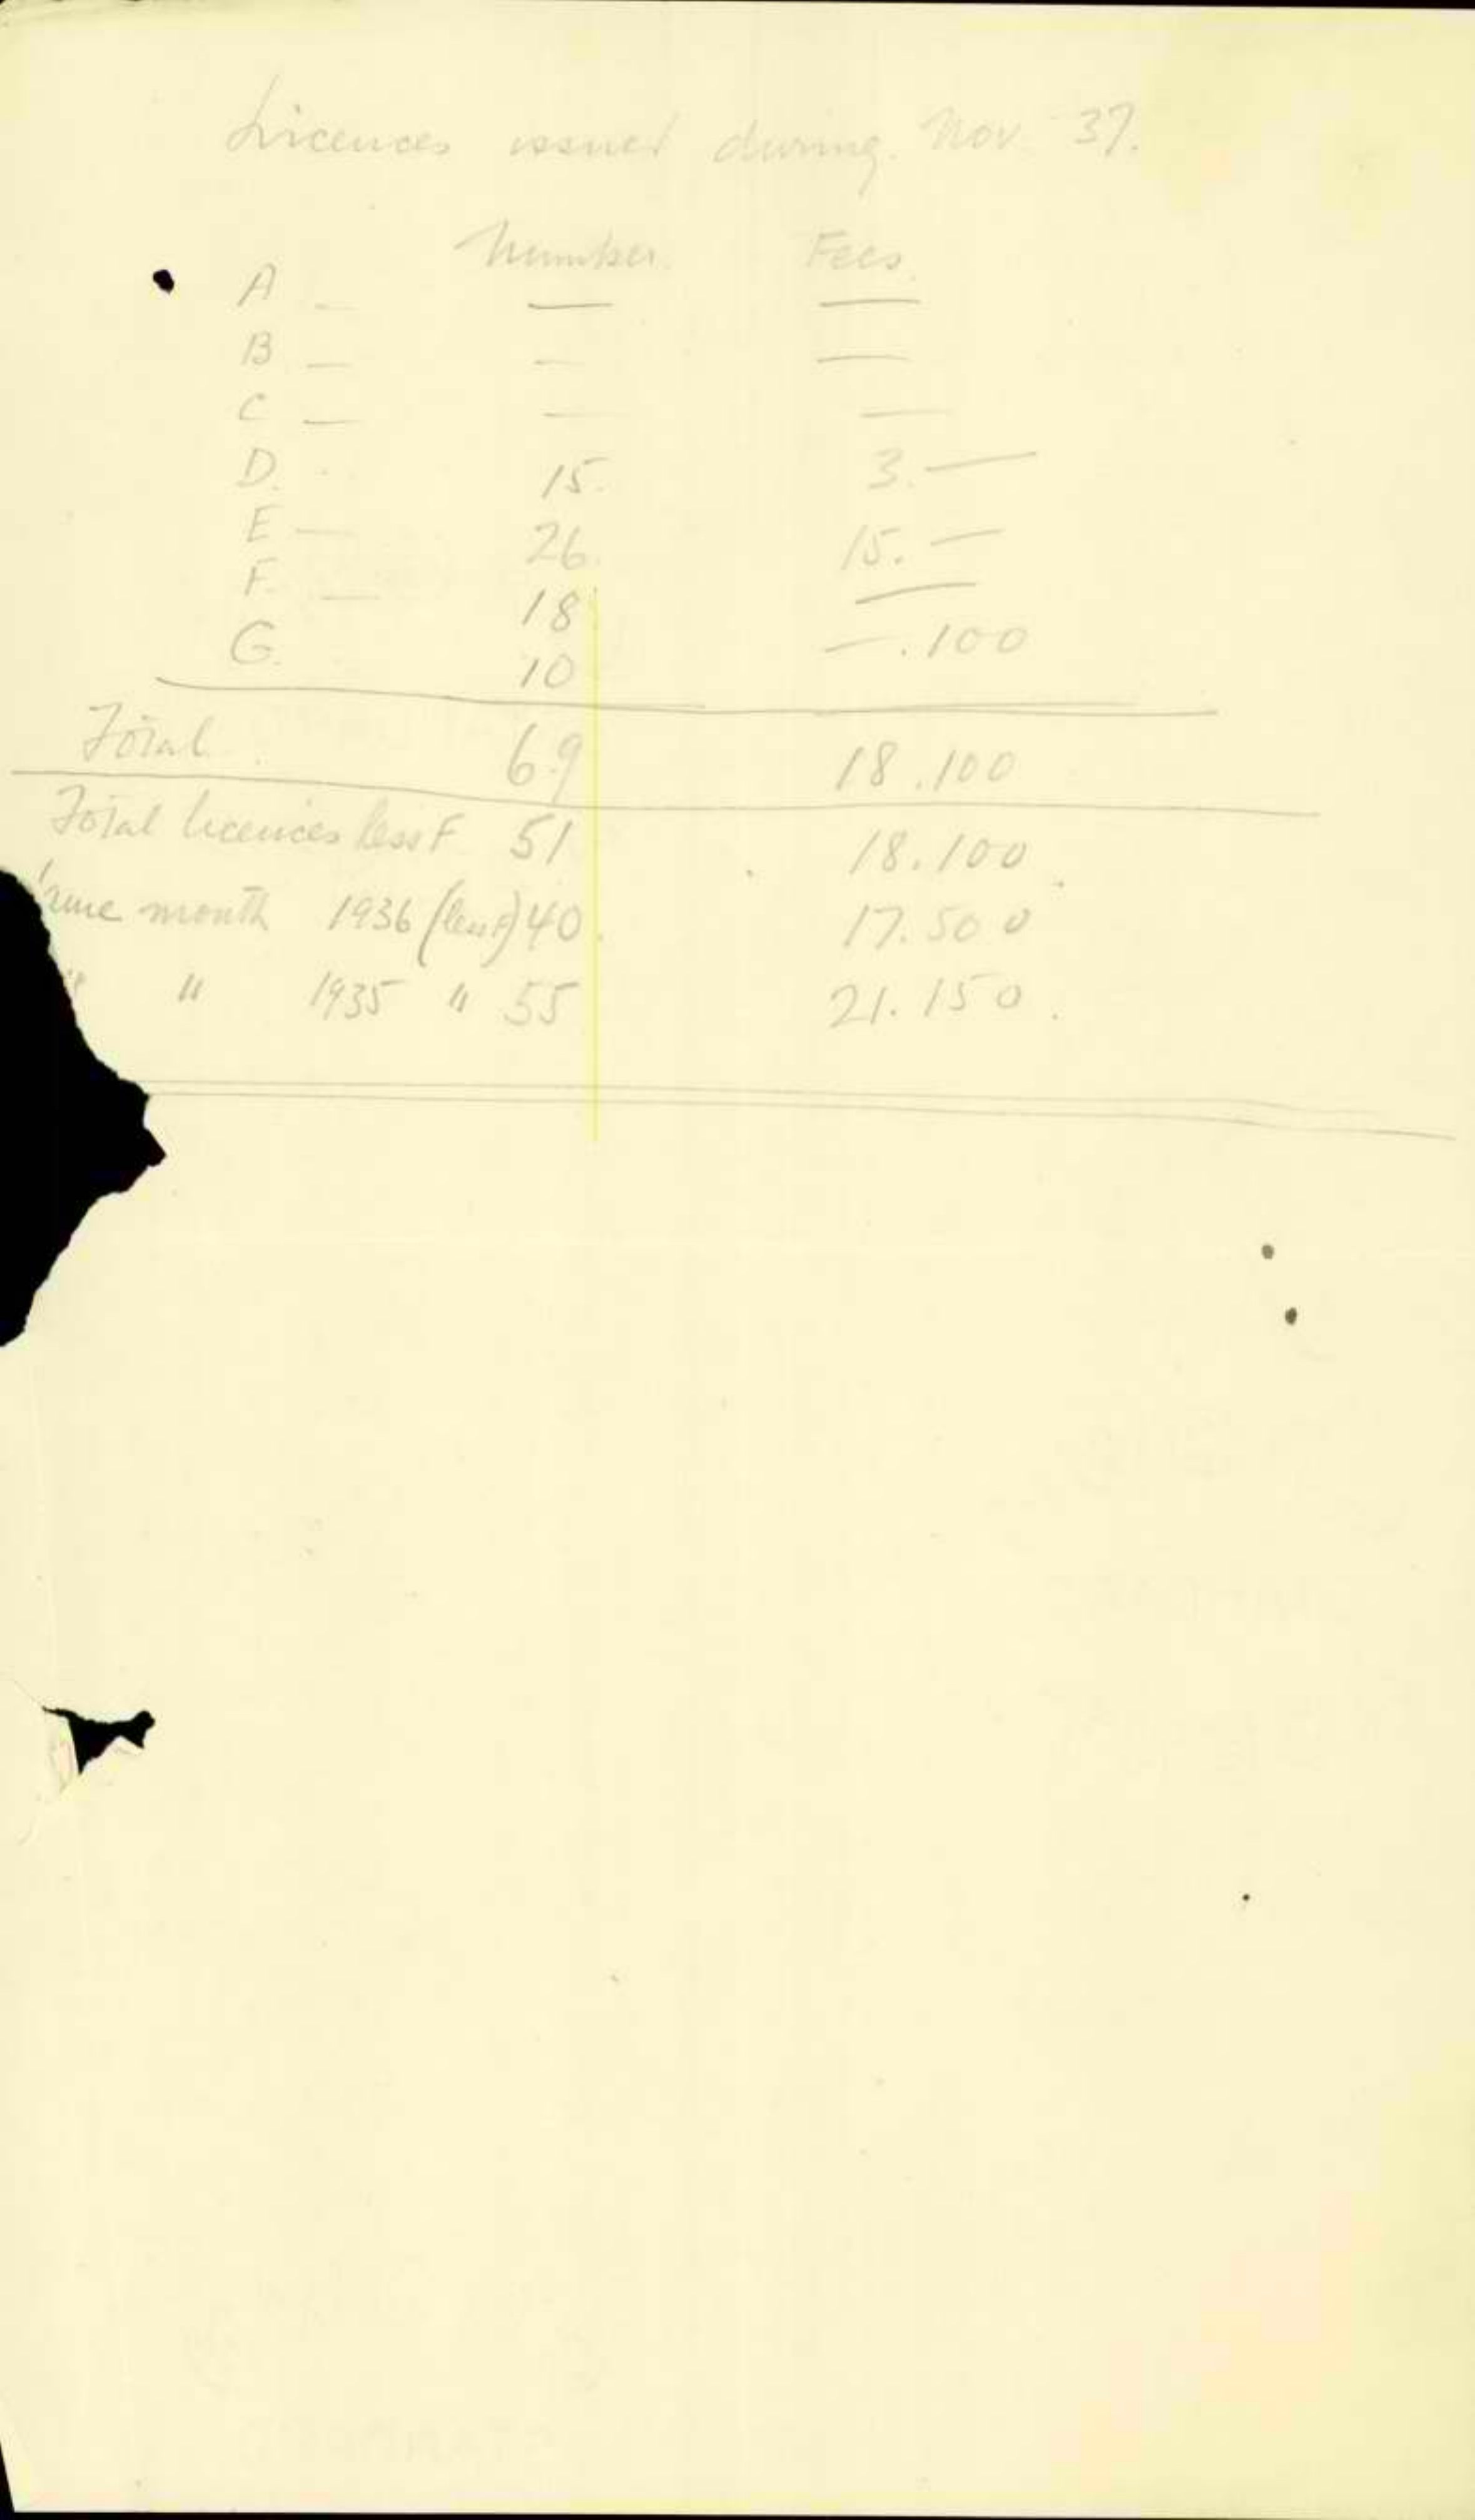 Licences issued during Nov 37.
Number. Fees.
A — — —
B — — —
C — — —
D. - 15. 3. —
E — 26. 15. —
F. — 18 —
G. 10 — . 100
Total. 69 18.100
Total licences less F 51 18.100.
month 1936 (less F) 40. 17.500
" " 1935 " 55 21.150.